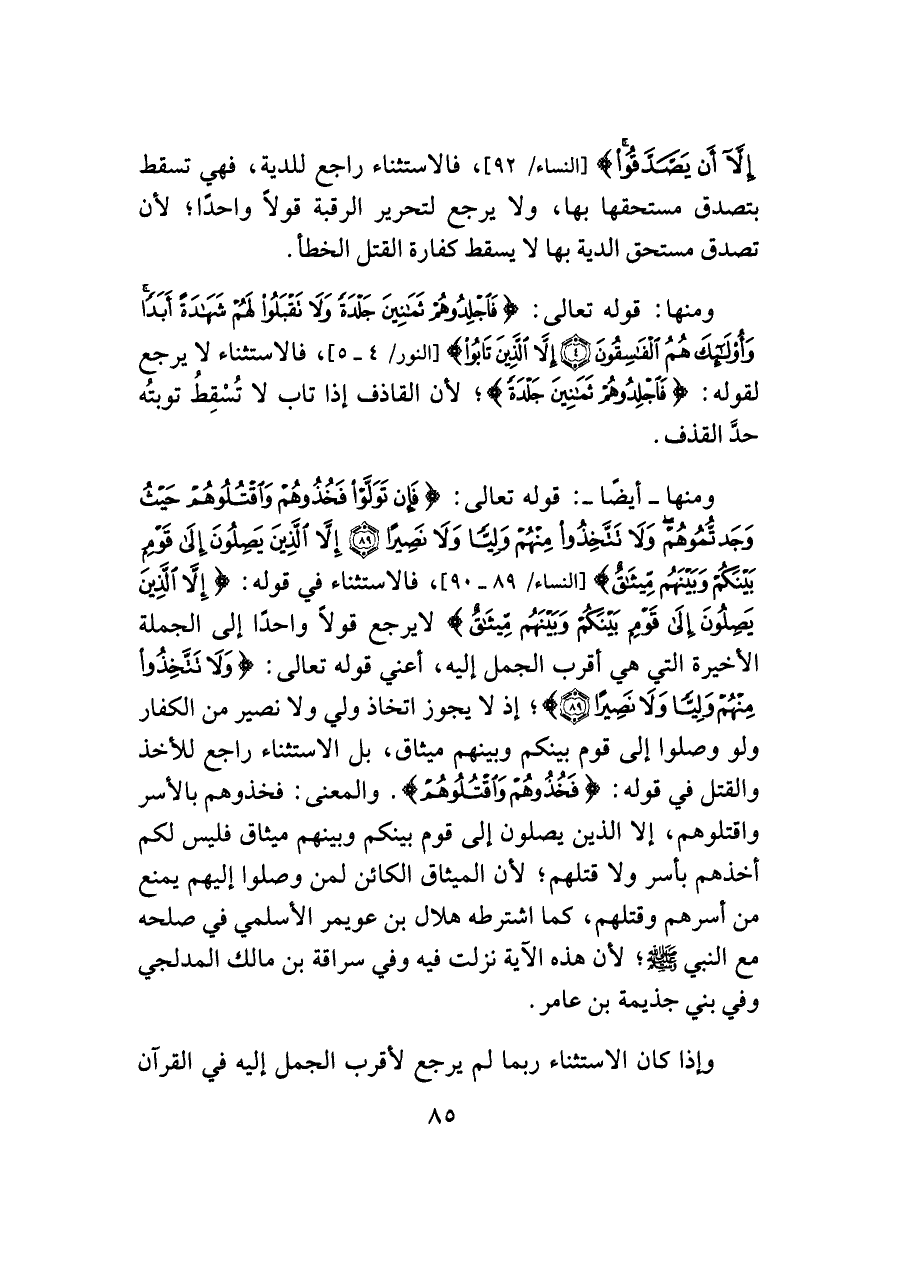 إِلَّآ أَن يَصَّدَّقُواْۚ﴾ [النساء/ ٩٢]، فالاستثناء راجع للدية، فهي تسقط
بتصدق مستحقها بها، ولا يرجع لتحرير الرقبة قولاً واحدًا؛ لأن
تصدق مستحق الدية بها لا يسقط كفارة القتل الخطأ.
ومنها: قوله تعالى: ﴿فَٱجۡلِدُوهُمۡ ثَمَٰنِينَ جَلۡدَةٗ وَلَا تَقۡبَلُواْ لَهُمۡ شَهَٰدَةً أَبَدٗاۚ
وَأُوْلَٰٓئِكَ هُمُ ٱلۡفَٰسِقُونَ ٤ إِلَّا ٱلَّذِينَ تَابُواْ﴾ [النور/ ٤ ـ ٥]، فالاستثناء لا يرجع
لقوله: ﴿فَٱجۡلِدُوهُمۡ ثَمَٰنِينَ جَلۡدَةٗ﴾؛ لأن القاذف إذا تاب لا تُسْقِطُ توبتُه
حدَّ القذف.
ومنها ـ أيضًا ـ: قوله تعالى: ﴿فَإِن تَوَلَّوۡاْ فَخُذُوهُمۡ وَٱقۡتُلُوهُمۡ حَيۡثُ
وَجَدتُّمُوهُمۡۖ وَلَا تَتَّخِذُواْ مِنۡهُمۡ وَلِيّٗا وَلَا نَصِيرًا ٨٩ إِلَّا ٱلَّذِينَ يَصِلُونَ إِلَىٰ قَوۡمِۭ
بَيۡنَكُمۡ وَبَيۡنَهُم مِّيثَٰقٌ﴾ [النساء/ ٨٩ ـ ٩٠]، فالاستثناء في قوله: ﴿إِلَّا ٱلَّذِينَ
يَصِلُونَ إِلَىٰ قَوۡمِۭ بَيۡنَكُمۡ وَبَيۡنَهُم مِّيثَٰقٌ﴾ لايرجع قولاً واحدًا إلى الجملة
الأخيرة التي هي أقرب الجمل إليه، أعني قوله تعالى: ﴿وَلَا تَتَّخِذُواْ
مِنۡهُمۡ وَلِيّٗا وَلَا نَصِيرًا ٨٩﴾؛ إذ لا يجوز اتخاذ ولي ولا نصير من الكفار
ولو وصلوا إلى قوم بينكم وبينهم ميثاق، بل الاستثناء راجع للأخذ
والقتل في قوله: ﴿فَخُذُوهُمۡ وَٱقۡتُلُوهُمۡ﴾. والمعنى: فخذوهم بالأسر
واقتلوهم، إلا الذين يصلون إلى قوم بينكم وبينهم ميثاق فليس لكم
أخذهم بأسر ولا قتلهم؛ لأن الميثاق الكائن لمن وصلوا إليهم يمنع
من أسرهم وقتلهم، كما اشترطه هلال بن عويمر الأسلمي في صلحه
مع النبي ﷺ؛ لأن هذه الآية نزلت فيه وفي سراقة بن مالك المدلجي
وفي بني جذيمة بن عامر.
وإذا كان الاستثناء ربما لم يرجع لأقرب الجمل إليه في القرآن
٨٥